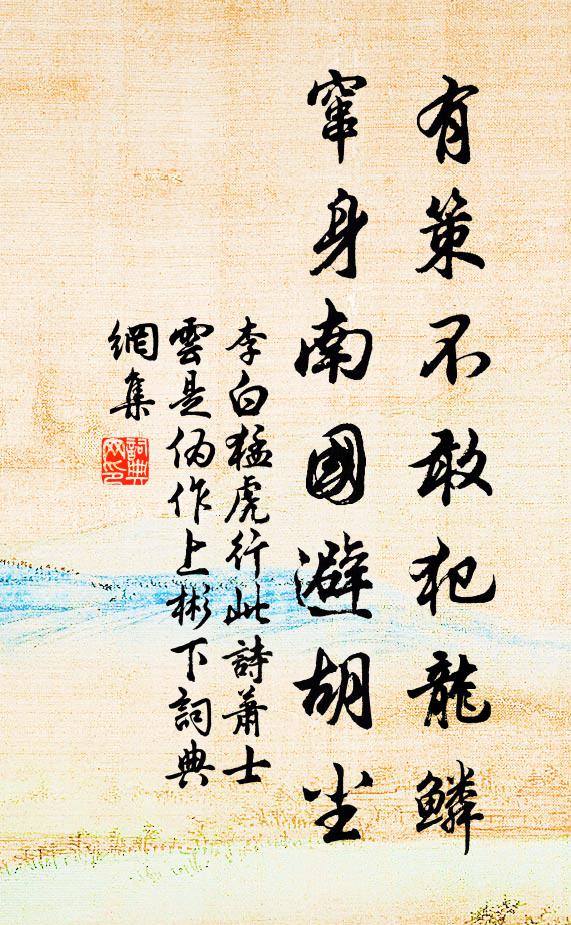 有策不敢犯龍鱗
窜身南國避胡尘
李白猛虎行此詩蕭士
雲是伪作上彬下詞典
網集
詞典
网印